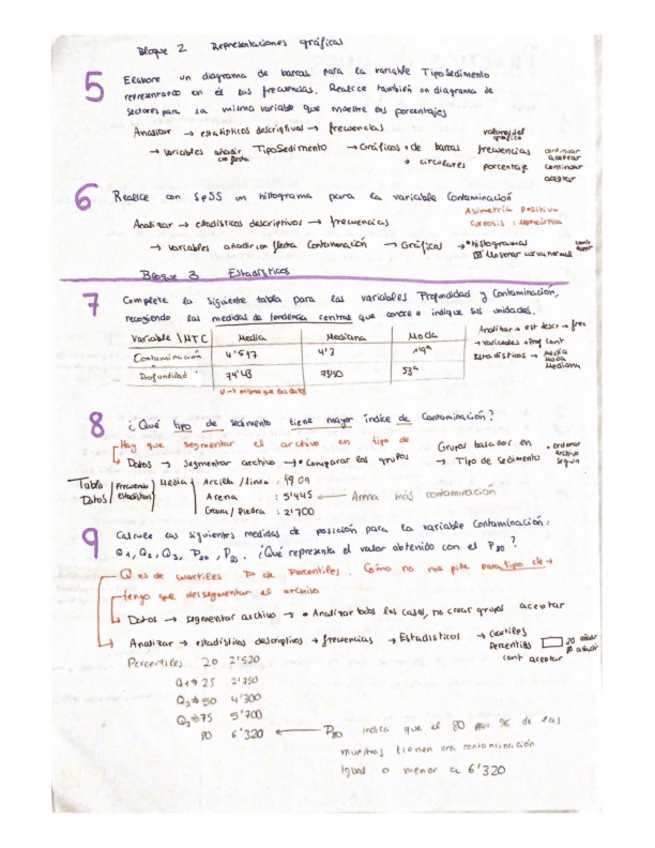 Bloque 2 Representaciones gráficas
5 Elabore un diagrama de barras para la variable TipoSedimento
representando en él las frecuencias. Realice también un diagrama de
sectores para la misma variable que muestre los porcentajes
Analizar → estadísticos descriptivos → frecuencias
valores del gráfico
→ variables añadir con flecha TipoSedimento → Gráficos • de barras frecuencias continuar aceptar
→ circulares porcentaje continuar aceptar
6 Realice con SPSS un histograma para la variable Contaminación
Asimetría positiva
Analizar → estadísticos descriptivos → frecuencias Curtosis leptocúrtica
→ variables añadir con flecha Contaminación → Gráficos → • Histogramas
☒ Mostrar curva normal
Bloque 3 Estadísticos
7 Complete la siguiente tabla para las variables Profundidad y Contaminación,
recogiendo las medidas de tendencia central que conoce e indique sus unidades.
Variable \ MTC Media Mediana Moda
Contaminación 4'517 4'3
Profundidad 74'43 53ª
Analizar → est descr → frec
→ variables → Prof Cont
Estadísticos → Media Moda Mediana
8 ¿Qué tipo de sedimento tiene mayor índice de Contaminación?
Hay que segmentar el archivo en tipo de
Datos → Segmentar archivo → • Comparar los grupos
Grupos basados en • ordenar archivo según
→ Tipo de Sedimento
Tabla Datos Frecuencia Estadísticos Media
Arcilla / limo :
Arena : 5'445 ← Arena más contaminación
Grava / Piedra : 2'700
9 Calcule las siguientes medidas de posición para la variable Contaminación:
Q1, Q2, Q3, P20, P80. ¿Qué representa el valor obtenido con el P80?
Q es de cuartiles P de Percentiles. Cómo no me pide para tipo de →
tengo que dessegmentar el archivo
Datos → segmentar archivo → • Analizar todos los casos, no crear grupos aceptar
Analizar → estadísticos descriptivos → frecuencias → Estadísticos → Cuartiles
Percentiles 20 añadir 80 añadir
cont aceptar
Percentiles 20 2'520
Q1 → 25 2'750
Q2 → 50 4'300
Q3 → 75 5'700
80 6'320 ← P80 indica que el 80 % de las
muestras tienen una contaminación
igual o menor a 6'320